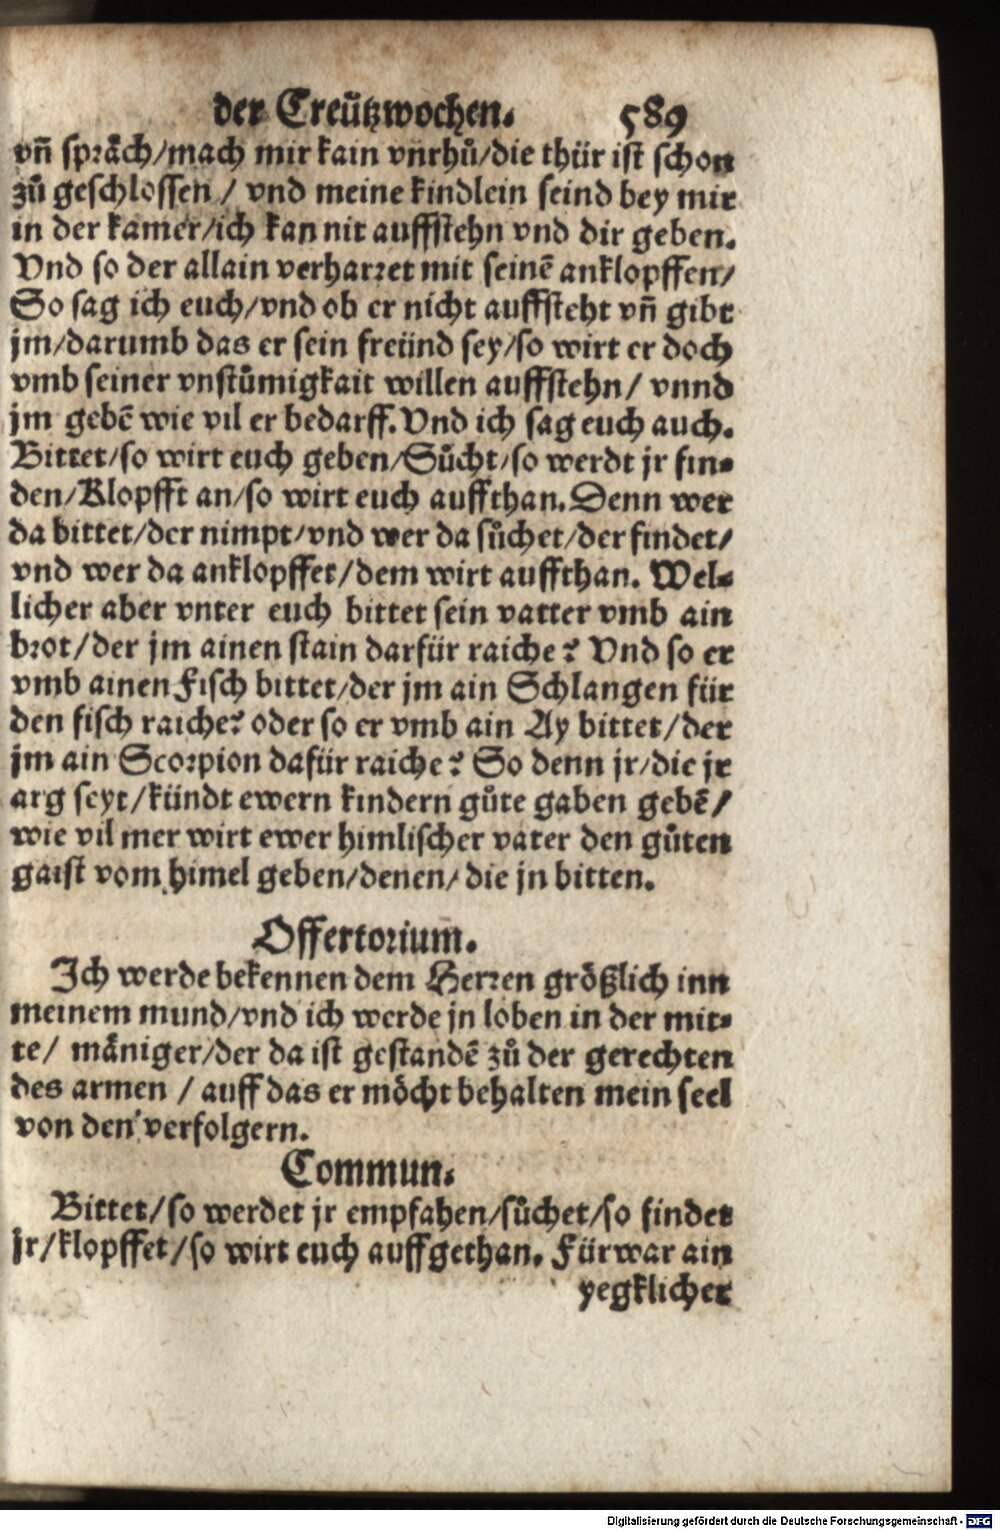 der Creützwochen. 589
vñ spräch/mach mir kain vnrhů/die thür ist schon
zů geschlossen / vnd meine kindlein seind bey mir
in der kamer/ich kan nit auffstehn vnd dir geben.
Vnd so der allain verharret mit seinẽ anklopffen/
So sag ich euch/vnd ob er nicht auffsteht vñ gibt
jm/darumb das er sein freünd sey/so wirt er doch
vmb seiner vnstůmigkait willen auffstehn/ vnnd
jm gebẽ wie vil er bedarff. Vnd ich sag euch auch.
Bittet/so wirt euch geben/Sůcht/so werdt jr fin-
den/Klopfft an/so wirt euch auffthan. Denn wer
da bittet/der nimpt/vnd wer da sůchet/der findet/
vnd wer da anklopffet/dem wirt auffthan. Wel-
licher aber vnter euch bittet sein vatter vmb ain
brot/der jm ainen stain darfür raiche? Vnd so er
vmb ainen Fisch bittet/der jm ain Schlangen für
den fisch raiche? oder so er vmb ain Ay bittet/der
jm ain Scorpion dafür raiche? So denn jr/die jr
arg seyt/kündt ewern kindern gůte gaben gebẽ/
wie vil mer wirt ewer himlischer vater den gůten
gaist vom himel geben/denen/ die jn bitten.
Offertorium.
Ich werde bekennen dem Herren größlich inn
meinem mund/vnd ich werde jn loben in der mit-
te/ mäniger/der da ist gestandẽ zů der gerechten
des armen / auff das er möcht behalten mein seel
von den verfolgern.
Commun.
Bittet/so werdet jr empfahen/sůchet/so findet
jr/klopffet/so wirt euch auffgethan. Fürwar ain
yegklicher
Digitalisierung gefördert durch die Deutsche Forschungsgemeinschaft - DFG